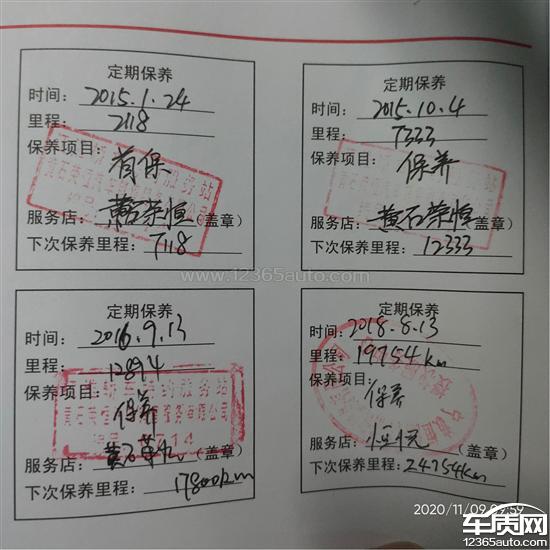 定期保养
时间：2015.1.24
里程：2118
保养项目：
首保
服务店：黄石荣恒（盖章）
下次保养里程：7118
定期保养
时间：2015.10.4
里程：7333
保养项目：
保养
服务店：黄石荣恒（盖章）
下次保养里程：12333
定期保养
时间：2016.9.13
里程：12894
保养项目：
保养
服务店：黄石荣恒（盖章）
下次保养里程：17800km
定期保养
时间：2018.8.13
里程：19754km
保养项目：
保养
服务店：（盖章）
下次保养里程：24754km
www.12365auto.com
2020/11/09 09:59
车质网
12365auto.com